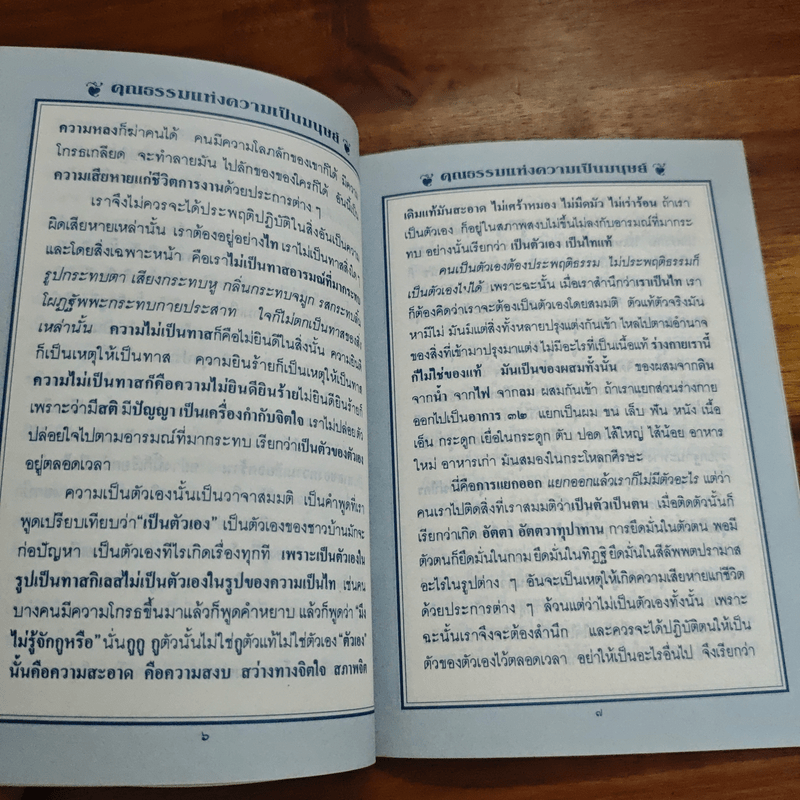 คุณธรรมแห่งความเป็นมนุษย์
ความหลงก็ฆ่าคนได้ คนมีความโลภลักของเขาก็ได้ มีความ
โกรธเกลียด จะทำลายมัน ไปลักของของใครก็ได้ อันนี้เป็น
ความเสียหายแก่ชีวิตการงานด้วยประการต่าง ๆ
เราจึงไม่ควรจะได้ประพฤติปฏิบัติในสิ่งอันเป็นความ
ผิดเสียหายเหล่านั้น เราต้องอยู่อย่างไท เราไม่เป็นทาสสิ่งใด
และโดยสิ่งเฉพาะหน้า คือเราไม่เป็นทาสอารมณ์ที่มากระทบ
รูปกระทบตา เสียงกระทบหู กลิ่นกระทบจมูก รสกระทบลิ้น
โผฏฐัพพะกระทบกายประสาท ใจก็ไม่ตกเป็นทาสของสิ่ง
เหล่านั้น ความไม่เป็นทาสก็คือไม่ยินดีในสิ่งนั้น ความยินดี
ก็เป็นเหตุให้เป็นทาส ความยินร้ายก็เป็นเหตุให้เป็นทาส
ความไม่เป็นทาสก็คือความไม่ยินดียินร้าย ไม่ยินดียินร้ายก็
เพราะว่ามีสติ มีปัญญา เป็นเครื่องกำกับจิตใจ เราไม่ปล่อยตัว
ปล่อยใจไปตามอารมณ์ที่มากระทบ เรียกว่าเป็นตัวของตัวเอง
อยู่ตลอดเวลา
ความเป็นตัวเองนั้นเป็นวาจาสมมติ เป็นคำพูดที่เรา
พูดเปรียบเทียบว่า“เป็นตัวเอง” เป็นตัวเองของชาวบ้านมักจะ
ก่อปัญหา เป็นตัวเองทีไรเกิดเรื่องทุกที เพราะเป็นตัวเองใน
รูปเป็นทาสกิเลสไม่เป็นตัวเองในรูปของความเป็นไท เช่นคน
บางคนมีความโกรธขึ้นมาแล้วก็พูดคำหยาบ แล้วก็พูดว่า “มึง
ไม่รู้จักกูหรือ” นั่นกูกู กูตัวนั้นไม่ใช่กูตัวแท้ไม่ใช่ตัวเอง “ตัวเอง”
นั้นคือความสะอาด คือความสงบ สว่างทางจิตใจ สภาพจิต
๖
คุณธรรมแห่งความเป็นมนุษย์
เดิมแท้มันสะอาด ไม่เศร้าหมอง ไม่มืดมัว ไม่เร่าร้อน ถ้าเรา
เป็นตัวเอง ก็อยู่ในสภาพสงบไม่ขึ้นไม่ลงกับอารมณ์ที่มากระ-
ทบ อย่างนั้นเรียกว่า เป็นตัวเอง เป็นไทแท้
คนเป็นตัวเองต้องประพฤติธรรม ไม่ประพฤติธรรมก็
เป็นตัวเองไปไม่ได้ เพราะฉะนั้น เมื่อเราสำนึกว่าเราเป็นไท เรา
ก็ต้องคิดว่าเราจะต้องเป็นตัวเองโดยสมมติ ตัวแท้ตัวจริงมัน
หามีไม่ มันมีแต่สิ่งทั้งหลายปรุงแต่งกันเข้า ไหลไปตามอำนาจ
ของสิ่งที่เข้ามาปรุงมาแต่ง ไม่มีอะไรที่เป็นเนื้อแท้ ร่างกายเรานี้
ก็ไม่ใช่ของแท้ มันเป็นของผสมทั้งนั้น ของผสมจากดิน
จากน้ำ จากไฟ จากลม ผสมกันเข้า ถ้าเราแยกส่วนร่างกาย
ออกไปเป็นอาการ ๓๒ แยกเป็นผม ขน เล็บ ฟัน หนัง เนื้อ
เอ็น กระดูก เยื่อในกระดูก ตับ ปอด ไส้ใหญ่ ไส้น้อย อาหาร
ใหม่ อาหารเก่า มันสมองในกระโหลกศีรษะ
นี่คือการแยกออก แยกออกแล้วเราก็ไม่มีตัวอะไร แต่ว่า
คนเราไปติดสิ่งที่เราสมมติว่าเป็นตัวเป็นตน เมื่อติดตัวนั้นก็
เรียกว่าเกิด อัตตา อัตตวาทุปาทาน การยึดมั่นในตัวตน พอมี
ตัวตนก็ยึดมั่นในกาม ยึดมั่นในทิฏฐิ ยึดมั่นในสีลัพพตปรามาส
อะไรในรูปต่าง ๆ อันจะเป็นเหตุให้เกิดความเสียหายแก่ชีวิต
ด้วยประการต่าง ๆ ล้วนแต่ว่าไม่เป็นตัวเองทั้งนั้น เพราะ
ฉะนั้นเราจึงจะต้องสำนึก และควรจะได้ปฏิบัติตนให้เป็น
ตัวของตัวเองไว้ตลอดเวลา อย่าให้เป็นอะไรอื่นไป จึงเรียกว่า
๗